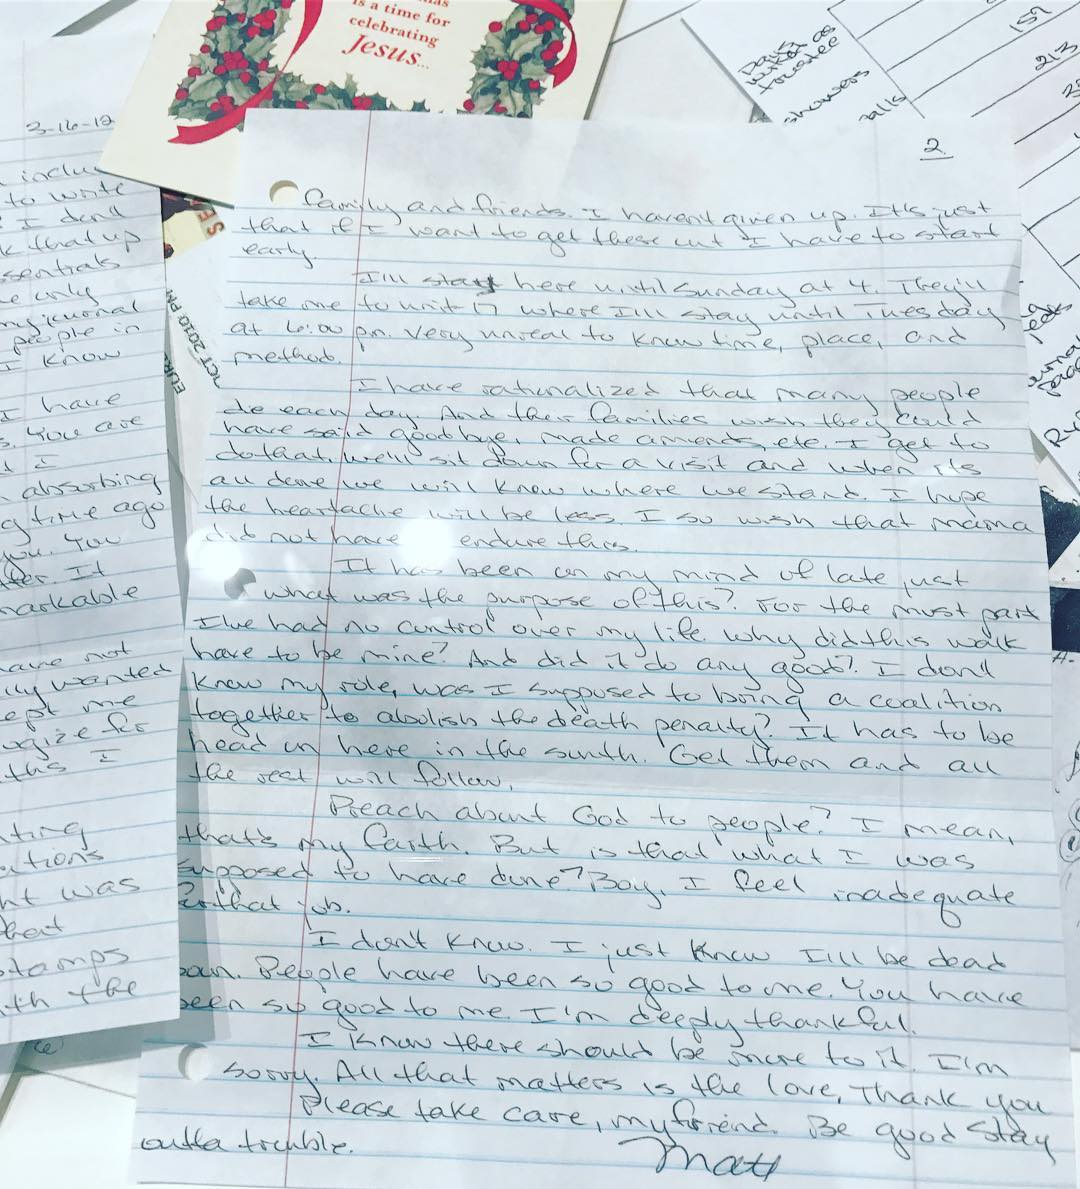 is a time for
celebrating
Jesus...
Days
worked as
trustee
showers
calls
157
213
3-16-12
inclu
to write
I don't
k that up
ssentials
e only
my journal
people in
I know
I have
s. You are
t I
absorbing
g time ago
you. You
fer. It
markable
have not
lly wanted
ept me
ogize for
this I
ting
ations
ht was
that
stamps
ith the
OCT 2010 PM
2
family and friends. I haven't given up. It's just
that if I want to get these out I have to start
early.
I'll stay here until Sunday at 4. They'll
take me to unit 17 where I'll stay until Tuesday
at 6:00 pm. Very unreal to know time, place, and
method.
I have rationalized that many people
die each day. And their families wish they could
have said goodbye, made amends, etc. I get to
do that. We'll sit down for a visit and when its
all done we will know where we stand. I hope
the heartache will be less. I so wish that mama
did not have endure this.
It has been on my mind of late just
what was the purpose of this? For the most part
I've had no control over my life. Why did this walk
have to be mine? And did it do any good? I don't
know my role, was I supposed to bring a coalition
together to abolish the death penalty? It has to be
head on here in the south. Get them and all
the rest will follow.
Preach about God to people? I mean,
that's my faith. But is that what I was
supposed to have done? Boy, I feel inadequate
for that job.
I don't know. I just know I'll be dead
soon. People have been so good to me. You have
been so good to me. I'm deeply thankful.
I know there should be more to it. I'm
sorry. All that matters is the love, Thank you
Please take care, my friend. Be good stay
outta trouble.
Matt